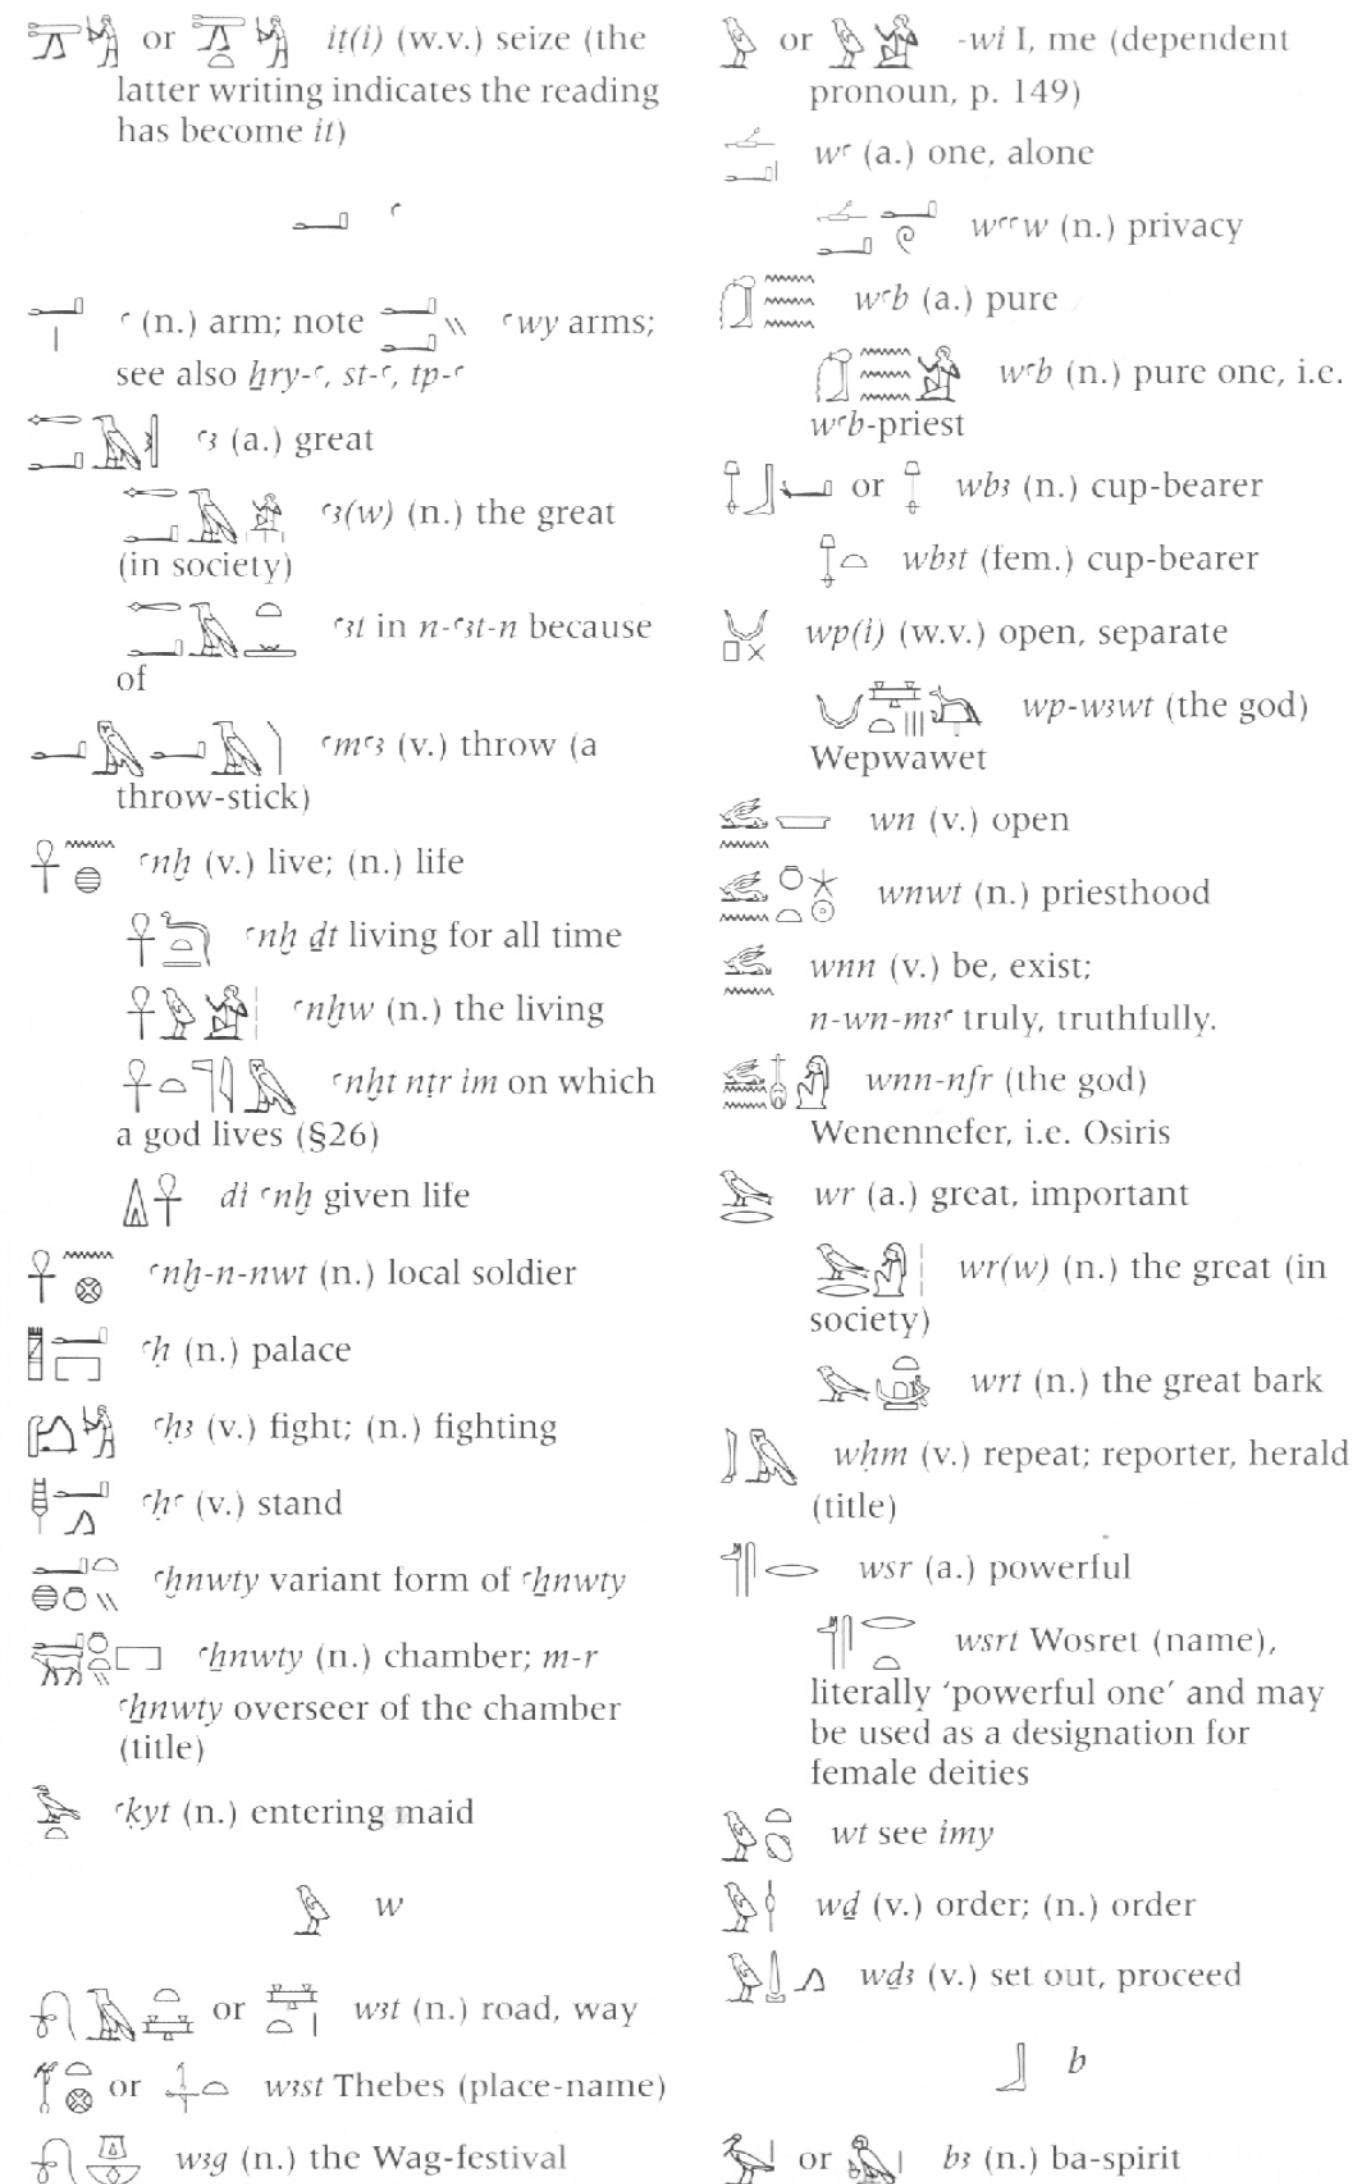 or iṯ(i) (w.v.) seize (the
latter writing indicates the reading
has become it)
ꜥ
ꜥ (n.) arm; note ꜥwy arms;
see also ẖry-ꜥ, st-ꜥ, tp-ꜥ
ꜥꜣ (a.) great
ꜥꜣ(w) (n.) the great
(in society)
ꜥꜣt in n-ꜥꜣt-n because
of
ꜥmꜥꜣ (v.) throw (a
throw-stick)
ꜥnḫ (v.) live; (n.) life
ꜥnḫ ḏt living for all time
ꜥnḫw (n.) the living
ꜥnḫt nṯr im on which
a god lives (§26)
di ꜥnḫ given life
ꜥnḫ-n-nwt (n.) local soldier
ꜥḥ (n.) palace
ꜥḥꜣ (v.) fight; (n.) fighting
ꜥḥꜥ (v.) stand
ꜥḫnwty variant form of ꜥẖnwty
ꜥẖnwty (n.) chamber; m-r
ꜥẖnwty overseer of the chamber
(title)
ꜥḳyt (n.) entering maid
w
or wꜣt (n.) road, way
or wꜣst Thebes (place-name)
wꜣg (n.) the Wag-festival
or -wi I, me (dependent
pronoun, p. 149)
wꜥ (a.) one, alone
wꜥꜥw (n.) privacy
wꜥb (a.) pure
wꜥb (n.) pure one, i.e.
wꜥb-priest
or wbꜣ (n.) cup-bearer
wbꜣt (fem.) cup-bearer
wp(i) (w.v.) open, separate
wp-wꜣwt (the god)
Wepwawet
wn (v.) open
wnwt (n.) priesthood
wnn (v.) be, exist;
n-wn-mꜣꜥ truly, truthfully.
wnn-nfr (the god)
Wenennefer, i.e. Osiris
wr (a.) great, important
wr(w) (n.) the great (in
society)
wrt (n.) the great bark
wḥm (v.) repeat; reporter, herald
(title)
wsr (a.) powerful
wsrt Wosret (name),
literally ‘powerful one’ and may
be used as a designation for
female deities
wt see imy
wḏ (v.) order; (n.) order
wḏꜣ (v.) set out, proceed
b
or bꜣ (n.) ba-spirit